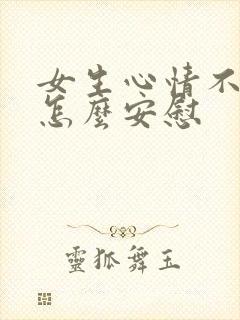 女生心情不
怎麼安慰
靈狐舞玉